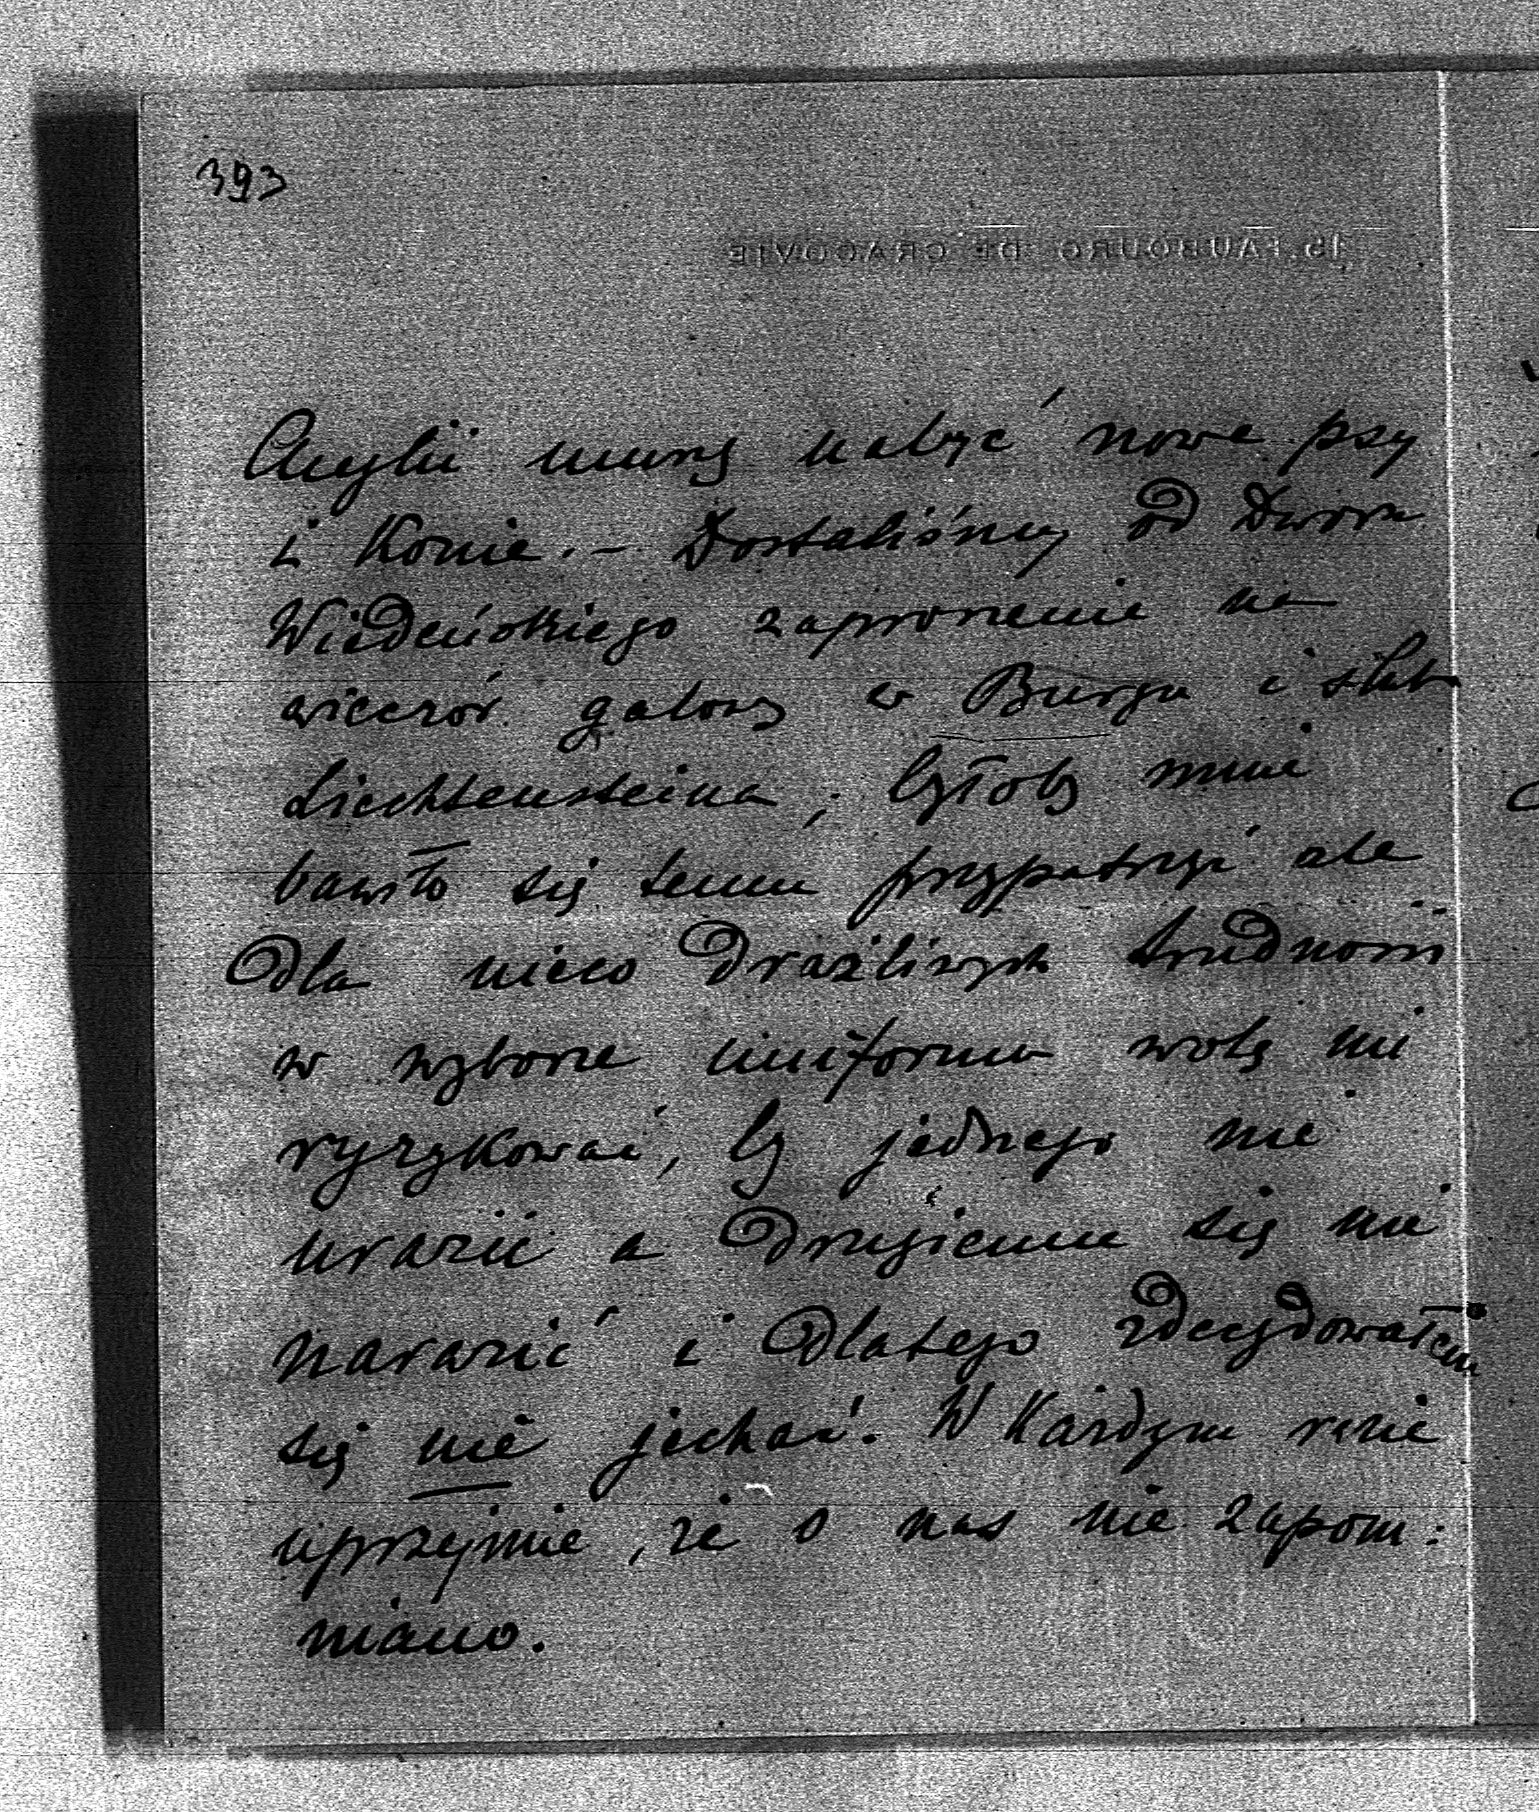 393
15. FAUBOURG DE CRACOVIE
Anglii muszę nabyć nowe psy
i Konie. – Dostaliśmy od Dworu
Wiedeńskiego zaproszenie na
wieczór galowy w Burgu i ślub
Liechtensteina, byłoby mnie
bawiło się temu przypatrzyć ale
dla nieco drażliwych trudności
w wyborze uniformu wolę nie
ryzykować, by jednego nie
urazić a drugiemu się nie
narazić i dlatego zdecydowałem
się nie jechać. W Każdym razie
uprzejmie, że o nas nie zapom:
niano.